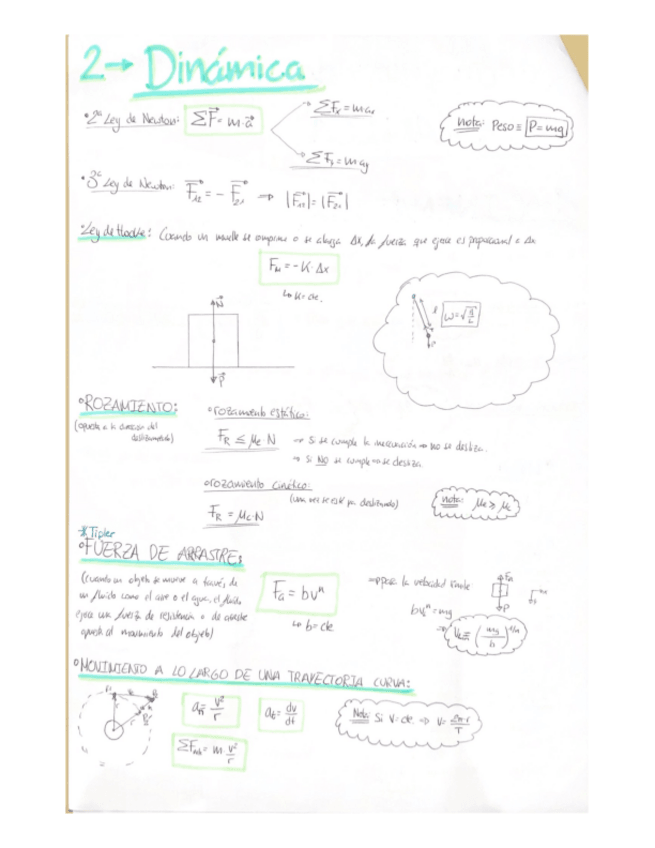 2→ Dinámica
•2ª Ley de Newton: ΣF⃗ = m·a⃗
ΣFₓ = maₓ
ΣFᵧ = maᵧ
nota: Peso ≡ P=mg
•3ª Ley de Newton: F⃗₁₂ = - F⃗₂₁ → |F⃗₁₂| = |F⃗₂₁|
•Ley de Hooke: Cuando un muelle se comprime o se alarga Δx, la fuerza que ejerce es proporcional a Δx
= -K·Δx
↳ K=cte.
N⃗
P⃗
ω=√g/L
•ROZAMIENTO:
(opuesta a la dirección del
deslizamiento)
•rozamiento estático:
F_R ≤ μe N → Si se cumple la inecuación → no se desliza.
→ Si NO se cumple → se desliza.
•rozamiento cinético:
(una vez se esté ya deslizando)
F_R = μc·N
nota: μe > μc
*Tipler
•FUERZA DE ARRASTRE:
(cuando un objeto se mueve a través de
un fluido como el aire o el agua, el fluido
ejerce una fuerza de resistencia o de arrastre
opuesta al movimiento del objeto)
= bvⁿ
↳ b=cte
para la velocidad límite
bvⁿ=mg
(mg/b)^1/n
P
•MOVIMIENTO A LO LARGO DE UNA TRAYECTORIA CURVA:
= v²/r
= dv/dt
= m·v²/r
r
Nota: Si v=cte ⇒ v= 2π·r/T